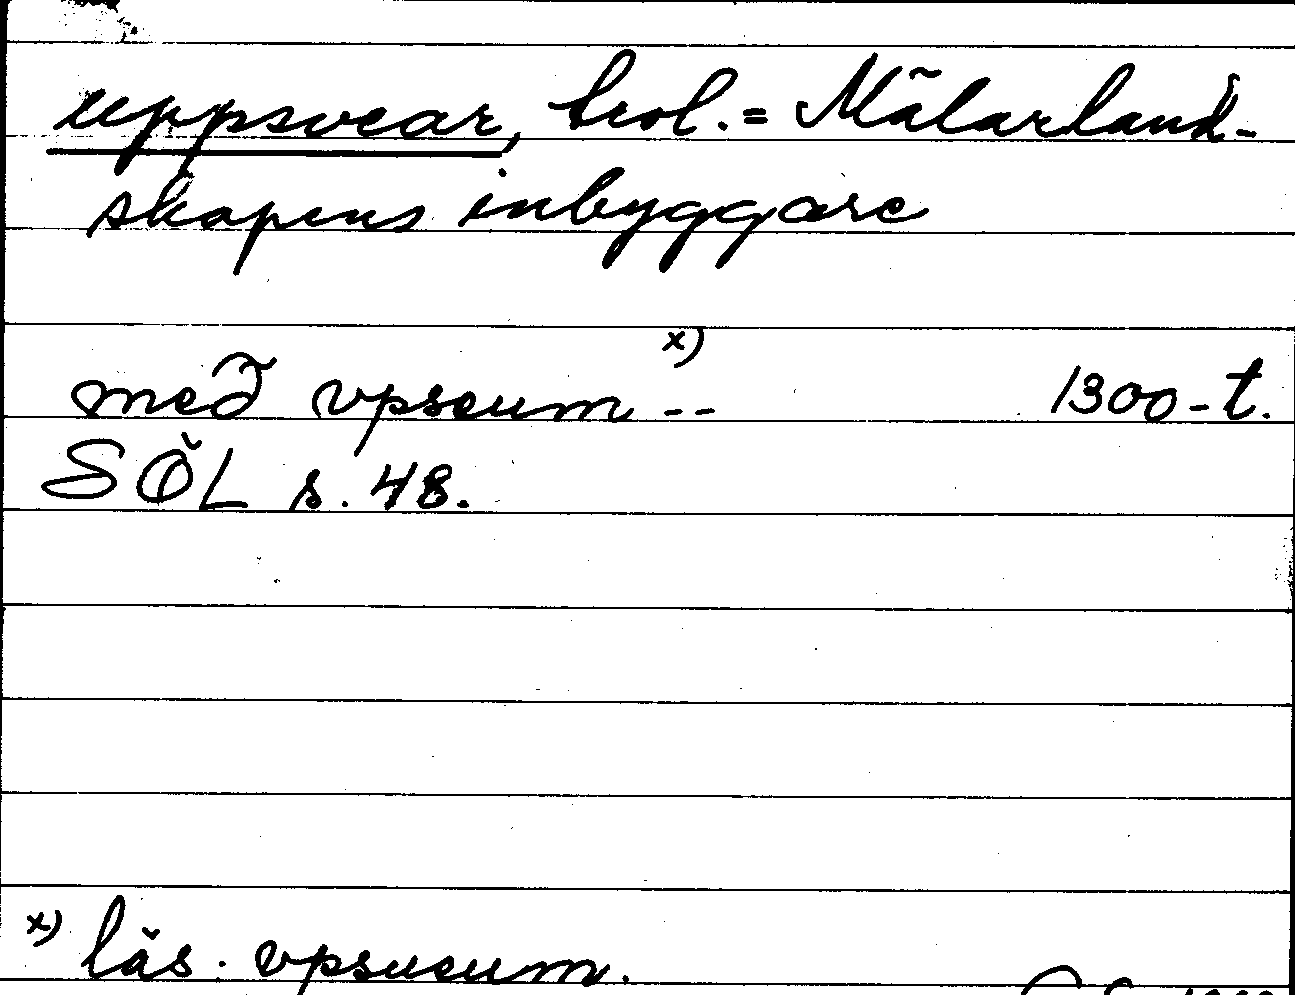 uppsvear, trol. = Mälarland-
skapens inbyggare
x)
með vpseum -- 1300-t.
SÖL s. 48.
x) läs. vpsueum.